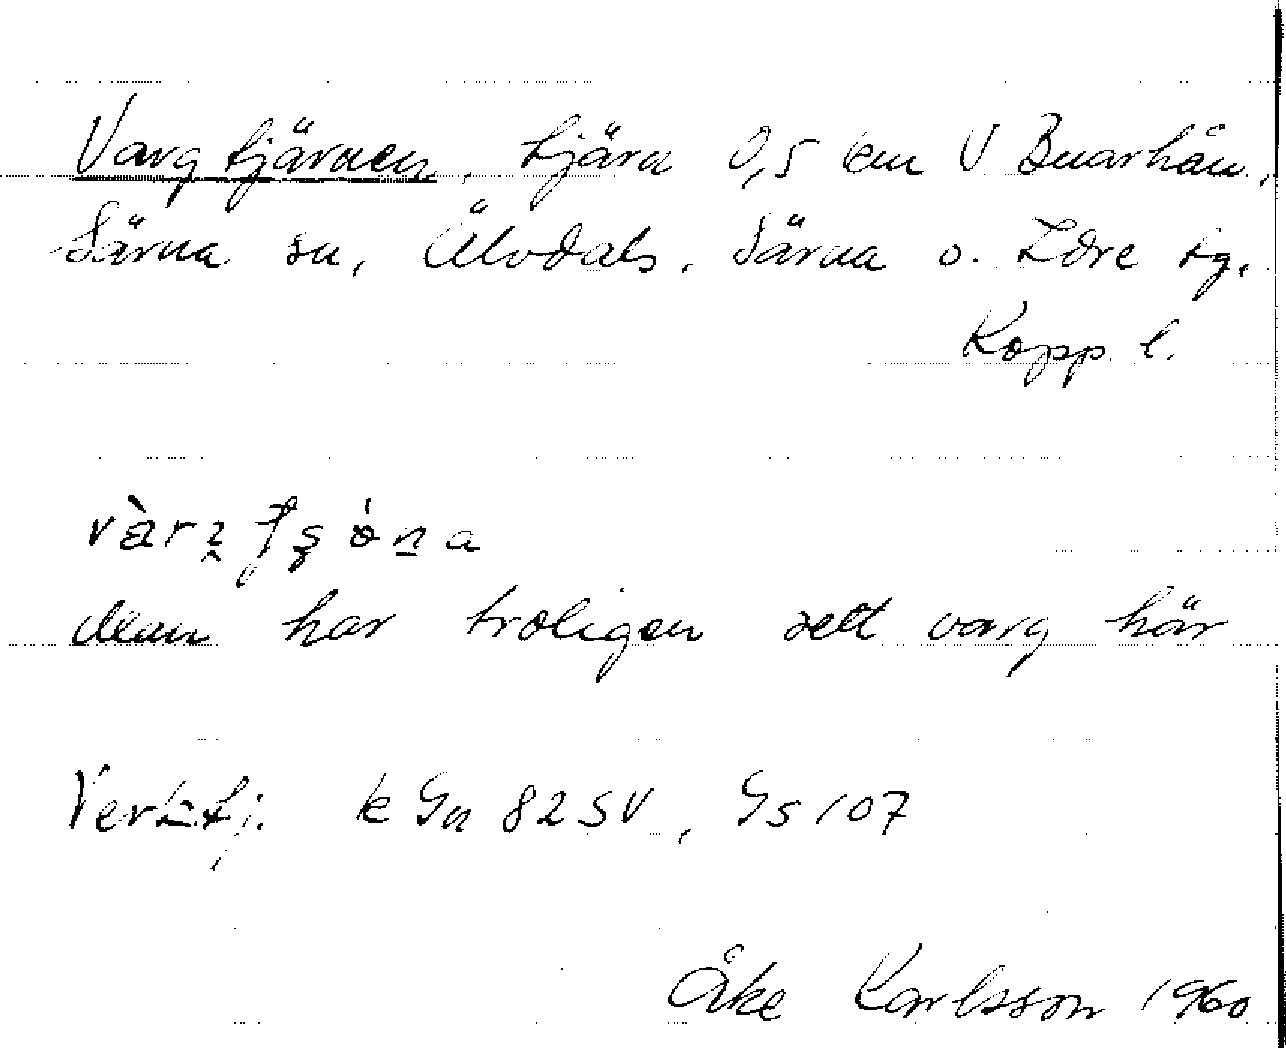 Vargtjärnen, tjärn 0,5 km V Buarhån,
Särna sn, Älvdals, Särna o. Idre tg,
Kopp. l.
Man har troligen sett varg här
Verktj: k Gn 82 SV, Gs 107
Åke Karlsson 1960